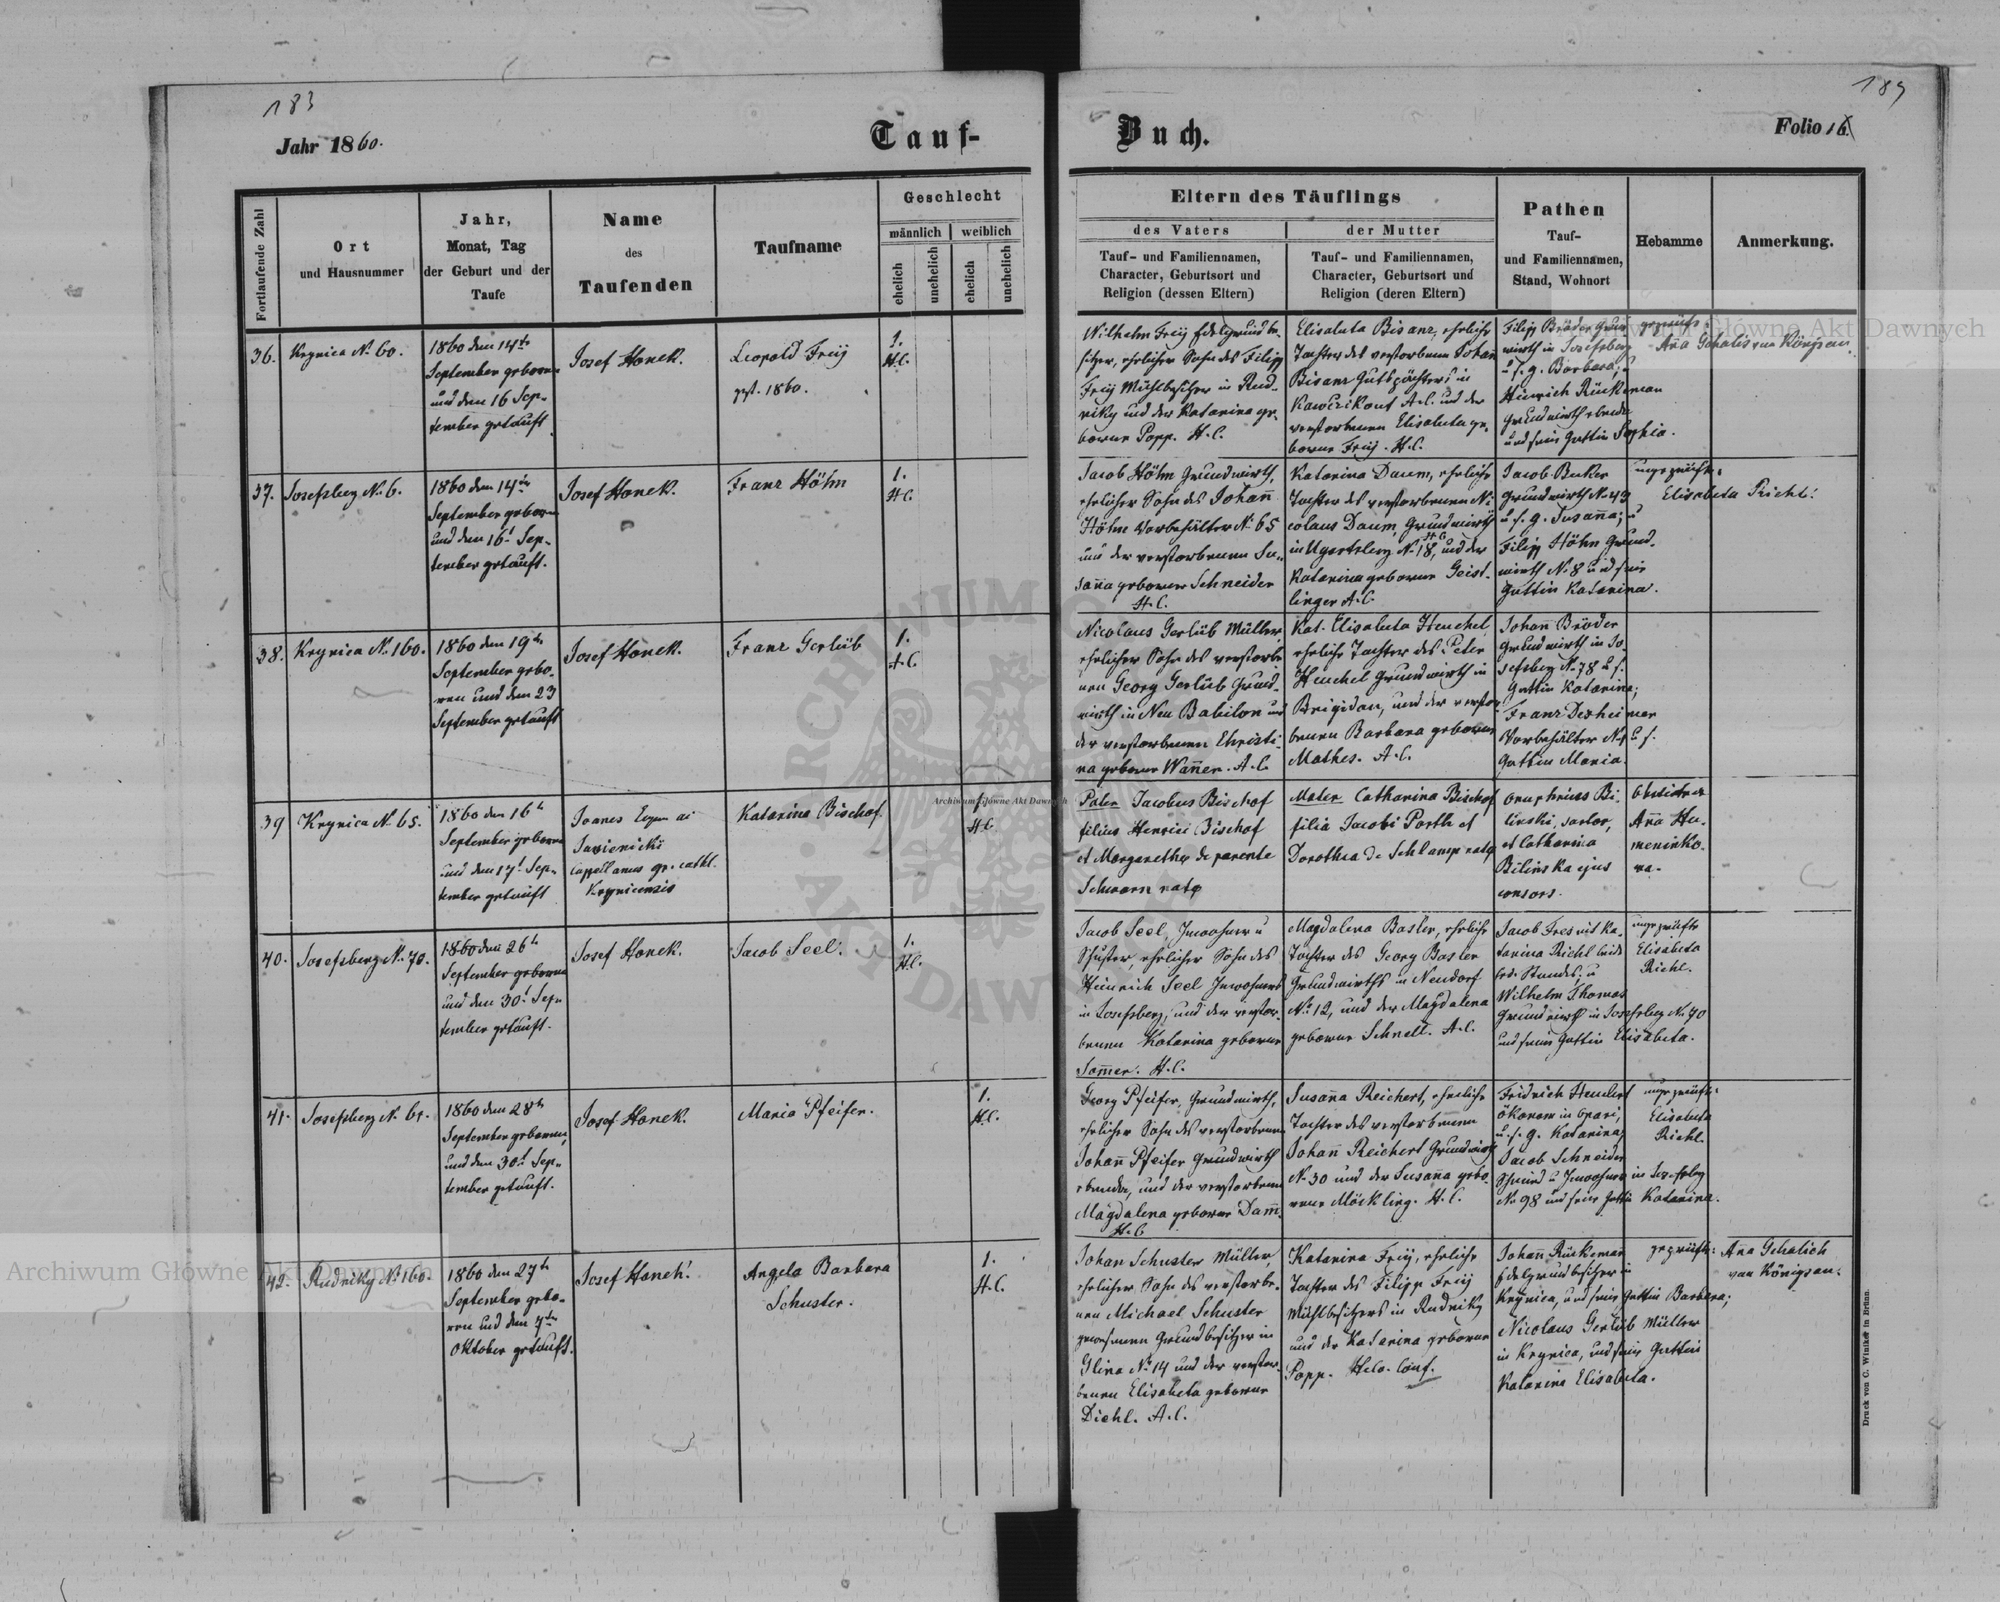 183
189
Jahr 1860.
Tauf-
Buch.
Folio 16
Fortlaufende Zahl
Ort
und Hausnummer
Jahr,
Monat, Tag
der Geburt und der
Taufe
Name
des
Taufenden
Taufname
Geschlecht
männlich
weiblich
ehelich
unehelich
ehelich
unehelich
Eltern des Täuflings
des Vaters
der Mutter
Tauf- und Familiennamen,
Character, Geburtsort und
Religion (dessen Eltern)
Tauf- und Familiennamen,
Character, Geburtsort und
Religion (deren Eltern)
Pathen
Tauf-
und Familiennamen,
Stand, Wohnort
Hebamme
Anmerkung.
36.
Krynica N. 60.
1860 den 14ten
September geboren
und den 16 Sep-
tember getauft
Josef Hanek.
Leopold Freÿ
gest. 1860.
1.
H.C.
Wilhelm Freÿ Edelgrundbe-
sitzer, ehelicher Sohn des Filipp
Freÿ Mühlbesitzer in Rud-
niky und der Katarina ge-
borne Popp. H.C.
Elisabeta Bisanz, eheliche
Tochter des verstorbenen Johan
Bisanz Gutspächters in
und der
verstorbenen Elisabeta ge-
borne Freÿ. H.C.
Filipp Bröder Grund
wirth in Josefsberg
u. s. g. Barbara; u
Heinrich Rückeman
Grundwirth ebenda
und seine Gattin Sophia.
geprüft:
Aña Gehalis von Königsau
37.
Josefsberg N. 6.
1860 den 14ten
September geboren
und den 16t Sep-
tember getauft.
Josef Hanek.
Franz Höhn
1.
H.C.
Jacob Höhn Grundwirth,
ehelicher Sohn des Johañ
Höhn Vorbehälter N. 65
und der verstorbenen Su-
sañna geborne Schneider
H.C.
Katarina Daum, eheliche
Tochter des verstorbenen Ni-
colaus Daum, Grundwirth
in Ugartsberg N. 18, und der
H.C.
Katarina geborne Geist-
linger A.C.
Jacob Becker
Grundwirth N. 43
u. s. g. Susaña; u
Filipp Höhn Grund-
wirth N. 8 und seine
Gattin Katarina.
ungeprüft:
Elisabeta Richl.
38.
Krynica N. 160.
1860 den 19ten
September gebo-
ren und den 23
September getauft
Josef Hanek.
Franz Gerlüb
1.
H.C.
Nicolaus Gerlüb Müller,
ehelicher Sohn des verstorbe-
nen Georg Gerlüb Grund-
wirth in Neu Babilon und
der verstorbenen Christi-
na geborne Wañer. A.C.
Kat. Elisabeta Heuchel
eheliche Tochter des Peter
Heuchel Grundwirth in
Brigidau, und der verstor-
benen Barbara geborne
Mathes. A.C.
Johañ Bröder
Grundwirth in Jo-
sefsberg N. 78 u. s.
Gattin Katarina;
Franz Dexheimer
Vorbehälter N. 4 u. s.
Gattin Maria.
39
Krynica N. 65.
1860 den 16t
September geboren
und den 17t Sep-
tember getauft
Joanes
Sasienicki
Cappellanus gr. cathl.
Krynicensis
Katarina Bischof.
1
H.C.
Pater Jacobus Bischof
filius Henrici Bischof
et Margarethæ de parente
Schwarn natæ
Mater Catharina Bischof
filia Jacobi Porth et
Dorothea de Schlamp natæ
Onuphrius Bi-
linski, sartor,
et Catharina
Bilinska ejus
consors.
Obstetrix
Aña Hu-
meninko-
wa.
40.
Josefsberg N. 70.
1860 den 26t
September geboren
und den 30t Sep-
tember getauft.
Josef Hanek.
Jacob Seel.
1.
H.C.
Jacob Seel, Inwohner u
Schuster, ehelicher Sohn des
Heinrich Seel Inwohners
in Josefsberg, und der verstor-
benen Katarina geborne
Somer. H.C.
Magdalena Basler, eheliche
Tochter des Georg Basler
Grundwirths in Neudorf
N. 12, und der Magdalena
geborne Schnell. A.C.
Jacob Fres mit Ka-
tarina Richl beide
led. Standes; u
Wilhelm Thomas
Grundwirth in Josefsberg N. 70
und seine Gattin Elisabeta.
ungeprüfte
Elisabeta
Richl.
41.
Josefsberg N. 61.
1860 den 28t
September geboren,
und den 30t Sep-
tember getauft.
Josef Hanek.
Maria Pfeifer.
1.
H.C.
Georg Pfeifer, Grundwirth,
ehelicher Sohn des verstorbenen
Johañ Pfeifer Grundwirth
ebenda, und der verstorbenen
Magdalena geborne Dam.
H.C.
Susaña Reichert, eheliche
Tochter des verstorbenen
Johañ Reichert Grundwirth
N. 50 und der Susaña gebo-
rene Möckling. H.C.
Fridrich
Ökonom in Opari,
u. s. g. Katarina;
Jacob Schneider
Schmied u Inwohner in Josefsberg
N. 98 und seine Gattin Katarina.
ungeprüft:
Elisabeta
Richl.
42.
Rudniky N. 160.
1860 den 27t
September gebo-
ren und den 7ten
Oktober getauft.
Josef Hanek.
Angela Barbara
Schuster.
1.
H.C.
Johan Schuster Müller,
ehelicher Sohn des verstorbe-
nen Michael Schuster
gewesenen Grundbesitzer in
Glina N. 14 und der verstor-
benen Elisabeta geborne
Diehl. A.C.
Katarina Freÿ, eheliche
Tochter des Filipp Freÿ
Mühlbesitzers in Rudniky
und der Katarina geborne
Popp. Helv. Conf.
Johañ Rückeman
Edelgrundbesitzer in
Krynica, und seine Gattin Barbara;
Nicolaus Gerlüb Müller
in Krynica, und seine Gattin
Katarina Elisabeta.
geprüft: Aña Gehalich
von Königsau.
Druck von C. Winiker in Brünn.
Archiwum Główne Akt Dawnych
Archiwum Główne Akt Dawnych
Archiwum Główne Akt Dawnych